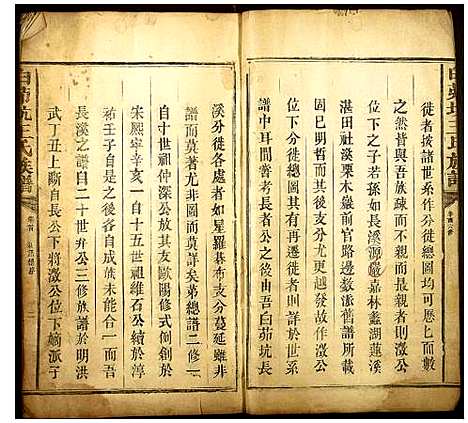 白茆坑王氏族譜
徙者挨諸世系作分徙總圖均可一展而數
之然皆與吾族疎而不親其最親者則澂公
之子若孫如長溪源嚴嘉林蠡湖蓮溪
湛田社溪栗木嶽前官路邊數派舊譜世次
固已明五世以下尤更越發故作澂公
分徙總圖其有再遷徙者則詳於世系
譜中耳間嘗考長者公之後由吾白茆坑長
溪分徙各處者如星羅碁布支分蔓延雖非
譜而莫著尤非圖而莫詳矣第總譜二修一
於十四世祖仲深公放其友歐陽修式創於
宋熙寧辛亥一自十五世祖維石公續於淳
祐壬子自是之後各自成族未能合一而吾
長溪之譜自二十世弁公三修族譜於明洪
武丁丑上斷自長公下將澂公位下嫡派于
白茆坑王氏族譜